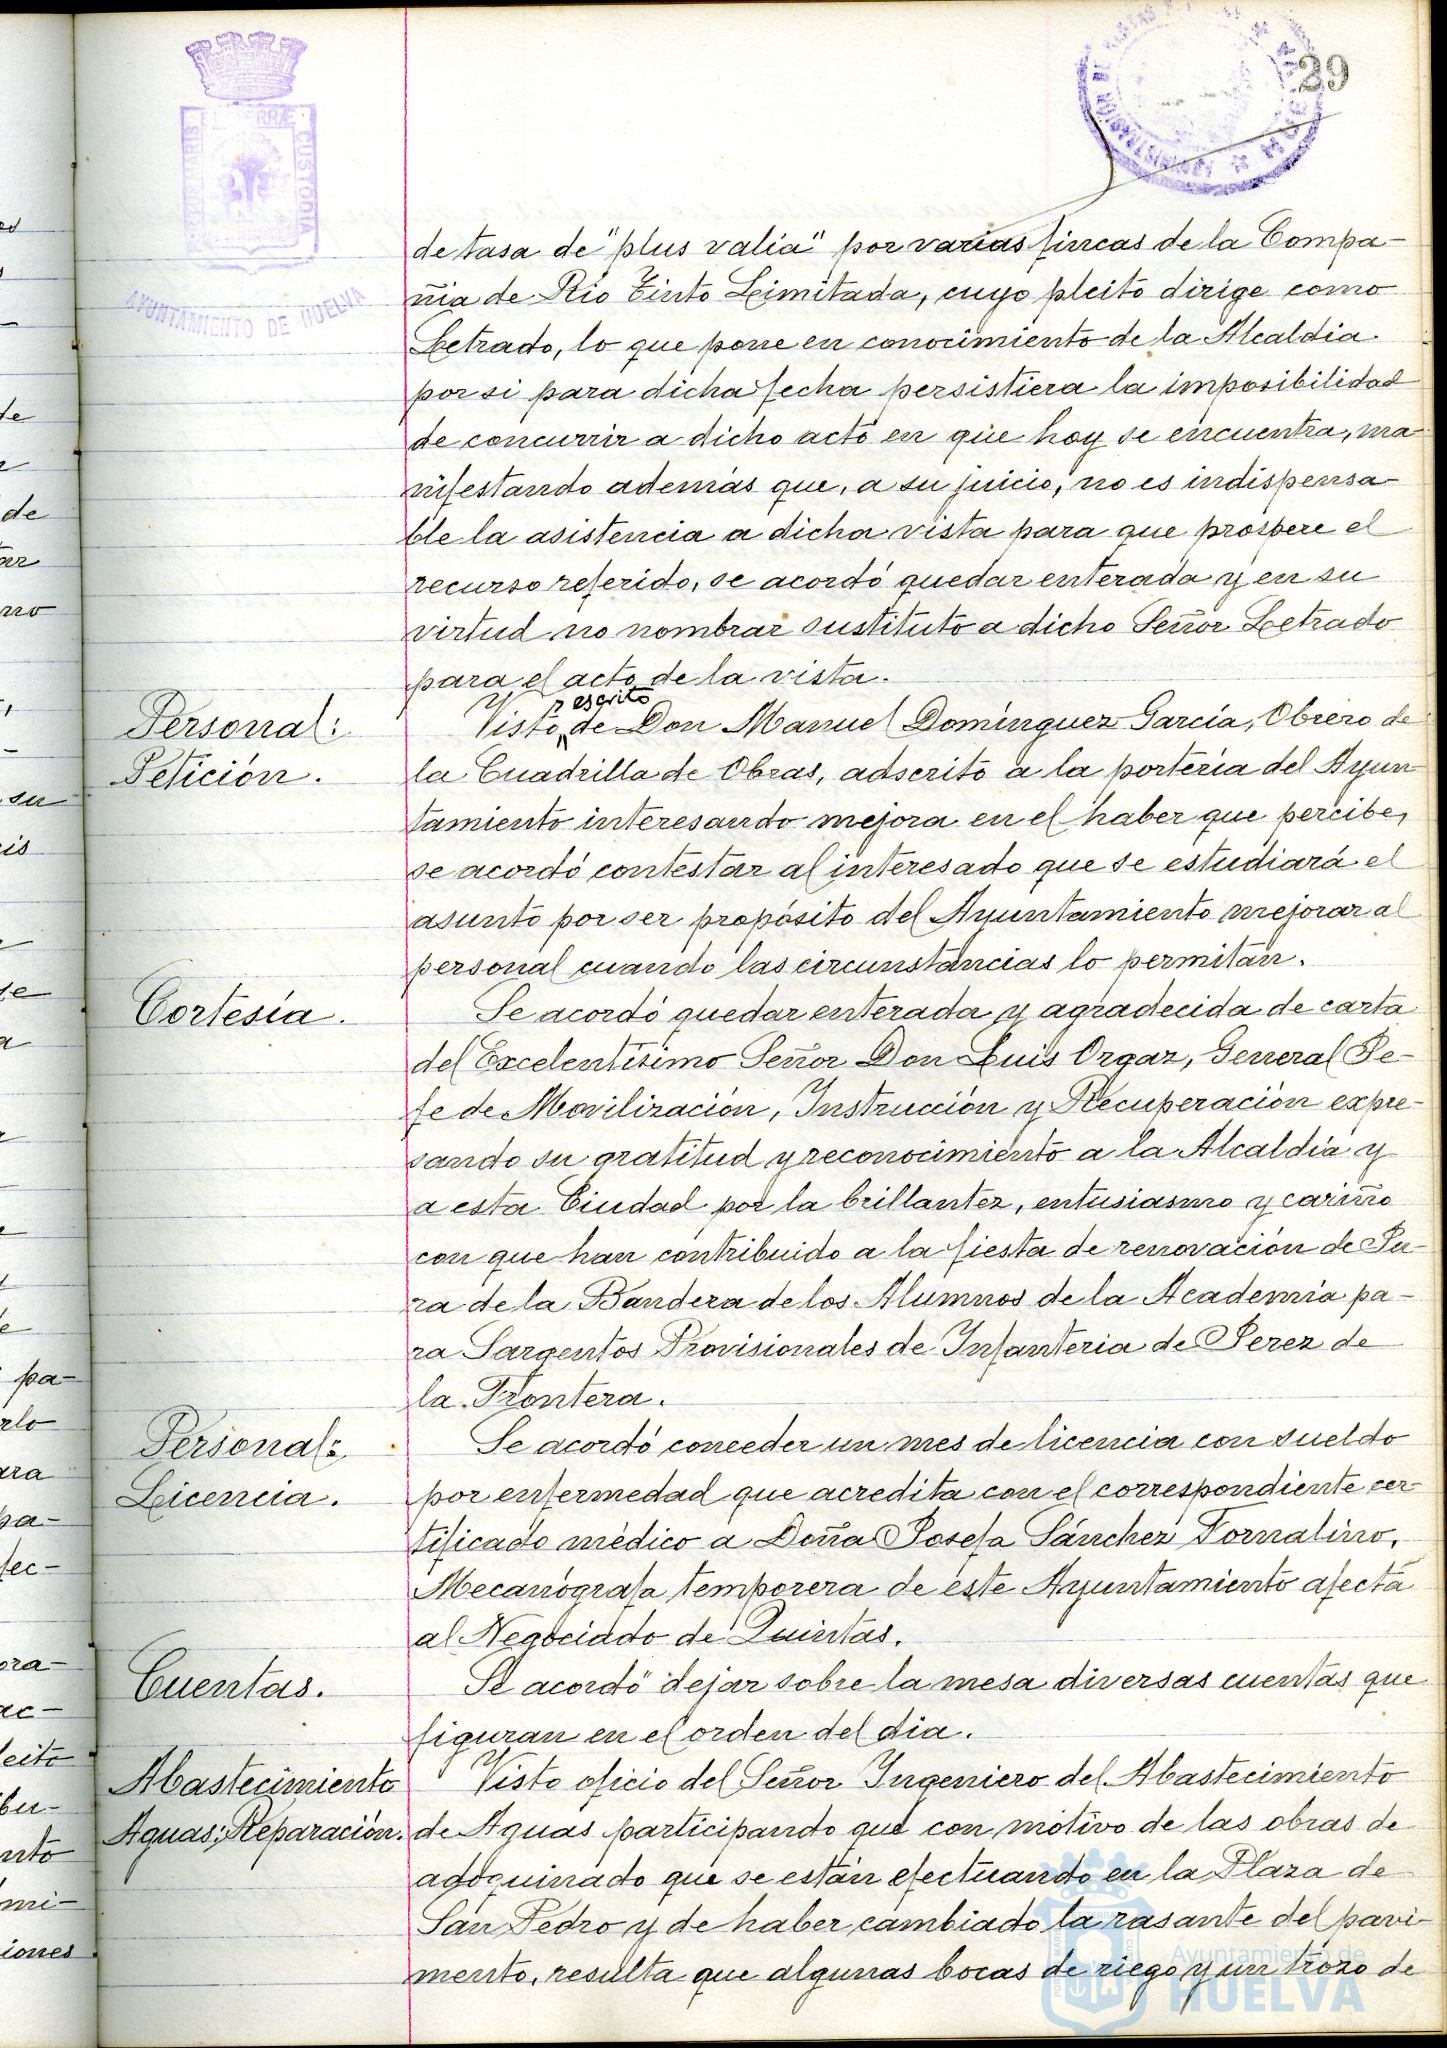 29
PORTUS MARIS ET TERRÆ CUSTODIA
AYUNTAMIENTO DE HUELVA
de tasa de "plus valia" por varias fincas de la Compa-
ñia de Rio Tinto Limitada, cuyo pleito dirige como
Letrado, lo que pone en conocimiento de la Alcaldia
por si para dicha fecha persistiera la imposibilidad
de concurrir a dicho acto en que hoy se encuentra, ma-
nifestando además que, a su juicio, no es indispensa-
ble la asistencia a dicha vista para que prospere el
recurso referido, se acordó quedar enterada y en su
virtud no nombrar sustituto a dicho Señor Letrado
para el acto de la vista.
Personal:
Petición.
escrito
Visto de Don Manuel Domínguez García, Obrero de
la Cuadrilla de Obras, adscrito a la portería del Ayun-
tamiento interesando mejora en el haber que percibe,
se acordó contestar al interesado que se estudiará el
asunto por ser propósito del Ayuntamiento mejorar al
personal cuando las circunstancias lo permitan.
Cortesía.
Se acordó quedar enterada y agradecida de carta
del Excelentísimo Señor Don Luis Orgaz, General Je-
fe de Movilización, Instrucción y Recuperación expre-
sando su gratitud y reconocimiento a la Alcaldía y
a esta Ciudad por la brillantez, entusiasmo y cariño
con que han contribuido a la fiesta de renovación de Ju-
ra de la Bandera de los Alumnos de la Academia pa-
ra Sargentos Provisionales de Infantería de Jerez de
la Frontera.
Personal:
Licencia.
Se acordó conceder un mes de licencia con sueldo
por enfermedad que acredita con el correspondiente cer-
tificado médico a Doña Josefa Sánchez Tornalino,
Mecanógrafa temporera de este Ayuntamiento afecta
al Negociado de Quintas.
Cuentas.
Se acordó dejar sobre la mesa diversas cuentas que
figuran en el orden del dia.
Abastecimiento
Aguas; Reparación.
Visto oficio del Señor Ingeniero del Abastecimiento
de Aguas participando que con motivo de las obras de
adoquinado que se están efectuando en la Plaza de
San Pedro y de haber cambiado la rasante del pavi-
mento, resulta que algunas bocas de riego y un trozo de
Ayuntamiento de
HUELVA